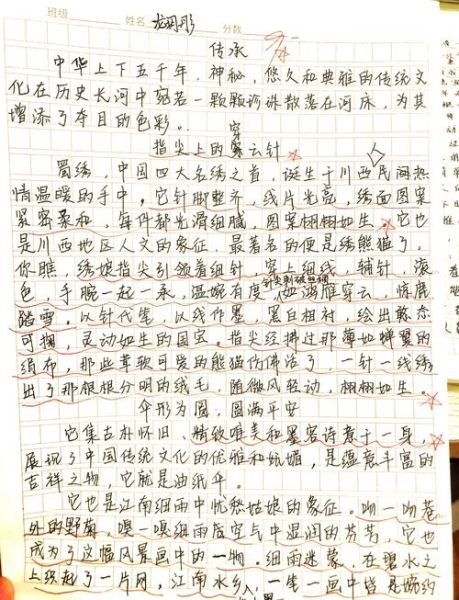 班级 姓名 龙玥彤 分数
传承
中华上下五千年，神秘，悠久和典雅的传统文
化在历史长河中宛若一颗颗珍珠散落在河床，为其
增添了夺目的色彩。
指尖上的穿云针
蜀绣，中国四大名绣之首，诞生于川西民间热
情温暖的手中，它针脚整齐，线片光亮，绣面图案
紧密柔和，每件都光滑细腻，图案栩栩如生。它也
是川西地区人文的象征，最著名的便是绣熊猫了。
你瞧，绣娘指尖引领着细针，穿上细线，辅针，滚
色，手腕一起一承，温婉有度，针尖刺破丝绸
似游龙穿云，惊鹿
踏雪。以针代笔，以线作墨，黑白相衬，绘出憨态
可掬，灵动如生的国宝。指尖轻拂过那薄如蝉翼的
绢布，那些茸软可爱的熊猫仿佛活了，一针一线绣
出了那根根分明的绒毛，随微风轻动，栩栩如生。
伞形为圆，圆满平安
它集古朴怀旧、精致唯美和墨客诗意于一身，
展现了中国传统文化的优雅和妩媚，是蕴意丰富的
吉祥之物，它就是油纸伞。
它也是江南细雨中忧愁姑娘的象征。吻一吻巷
外的野菊，嗅一嗅细雨后空气中湿润的芬芳，它也
成为了这幅风景画中的一物。细雨迷蒙，在碧水之
上织起了一片网，江南水乡，一笔一画中皆是婉约